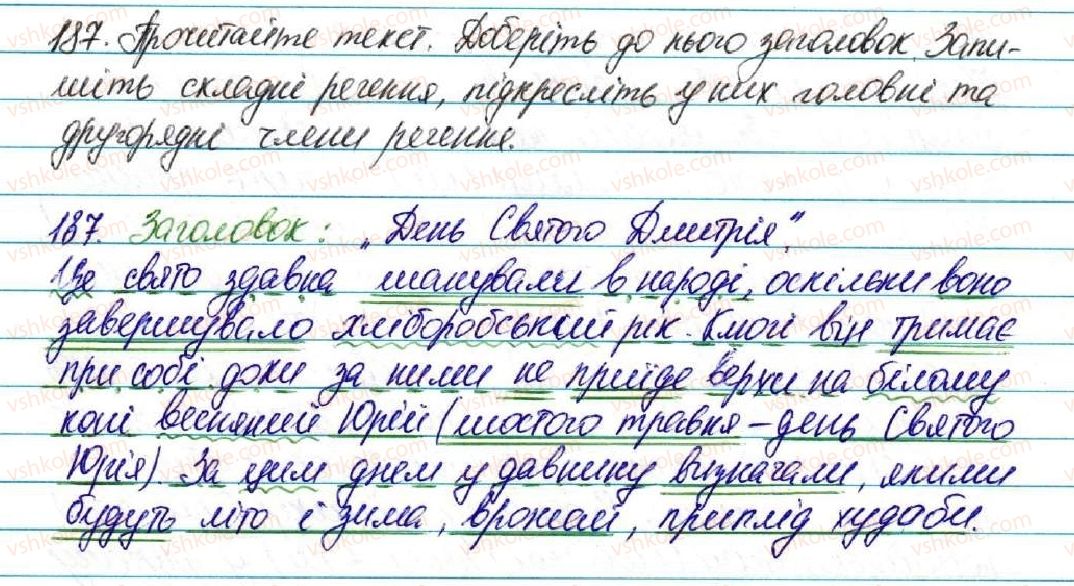 187. Прочитайте текст. Доберіть до нього заголовок. Запи-
шіть складні речення, підкресліть у них головні та
другорядні члени речення.
187. Заголовок: „День Святого Дмитрія".
Це свято здавна шанували в народі, оскільки воно
завершувало хліборобський рік. Ключі він тримає
при собі доки за ними не приїде верхи на білому
коні весняний Юрій (шостого травня – день Святого
Юрія). За цим днем у давнину визначали, якими
будуть літо і зима, врожай, приплід худоби.